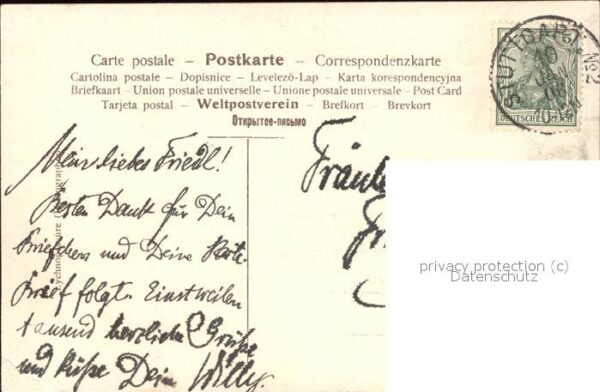 Carte postale – Postkarte – Correspondenzkarte
Cartolina postale – Dopisnice – Levelező-Lap – Karta korespondencyjna
Briefkaart – Union postale universelle – Unione postale universale – Post Card
Tarjeta postal – Weltpostverein – Brefkort – Brevkort
Открытое письмо
STUTTGART No 2
10 JAN 06
DEUTSCHES REICH
Mein liebes Friedl!
Besten Dank für Dein
Briefchen und Deine Karte
Brief folgt. Einstweilen
tausend herzliche Grüße
und Küße Dein Willy.
Fräule
Fr
privacy protection (c)
Datenschutz